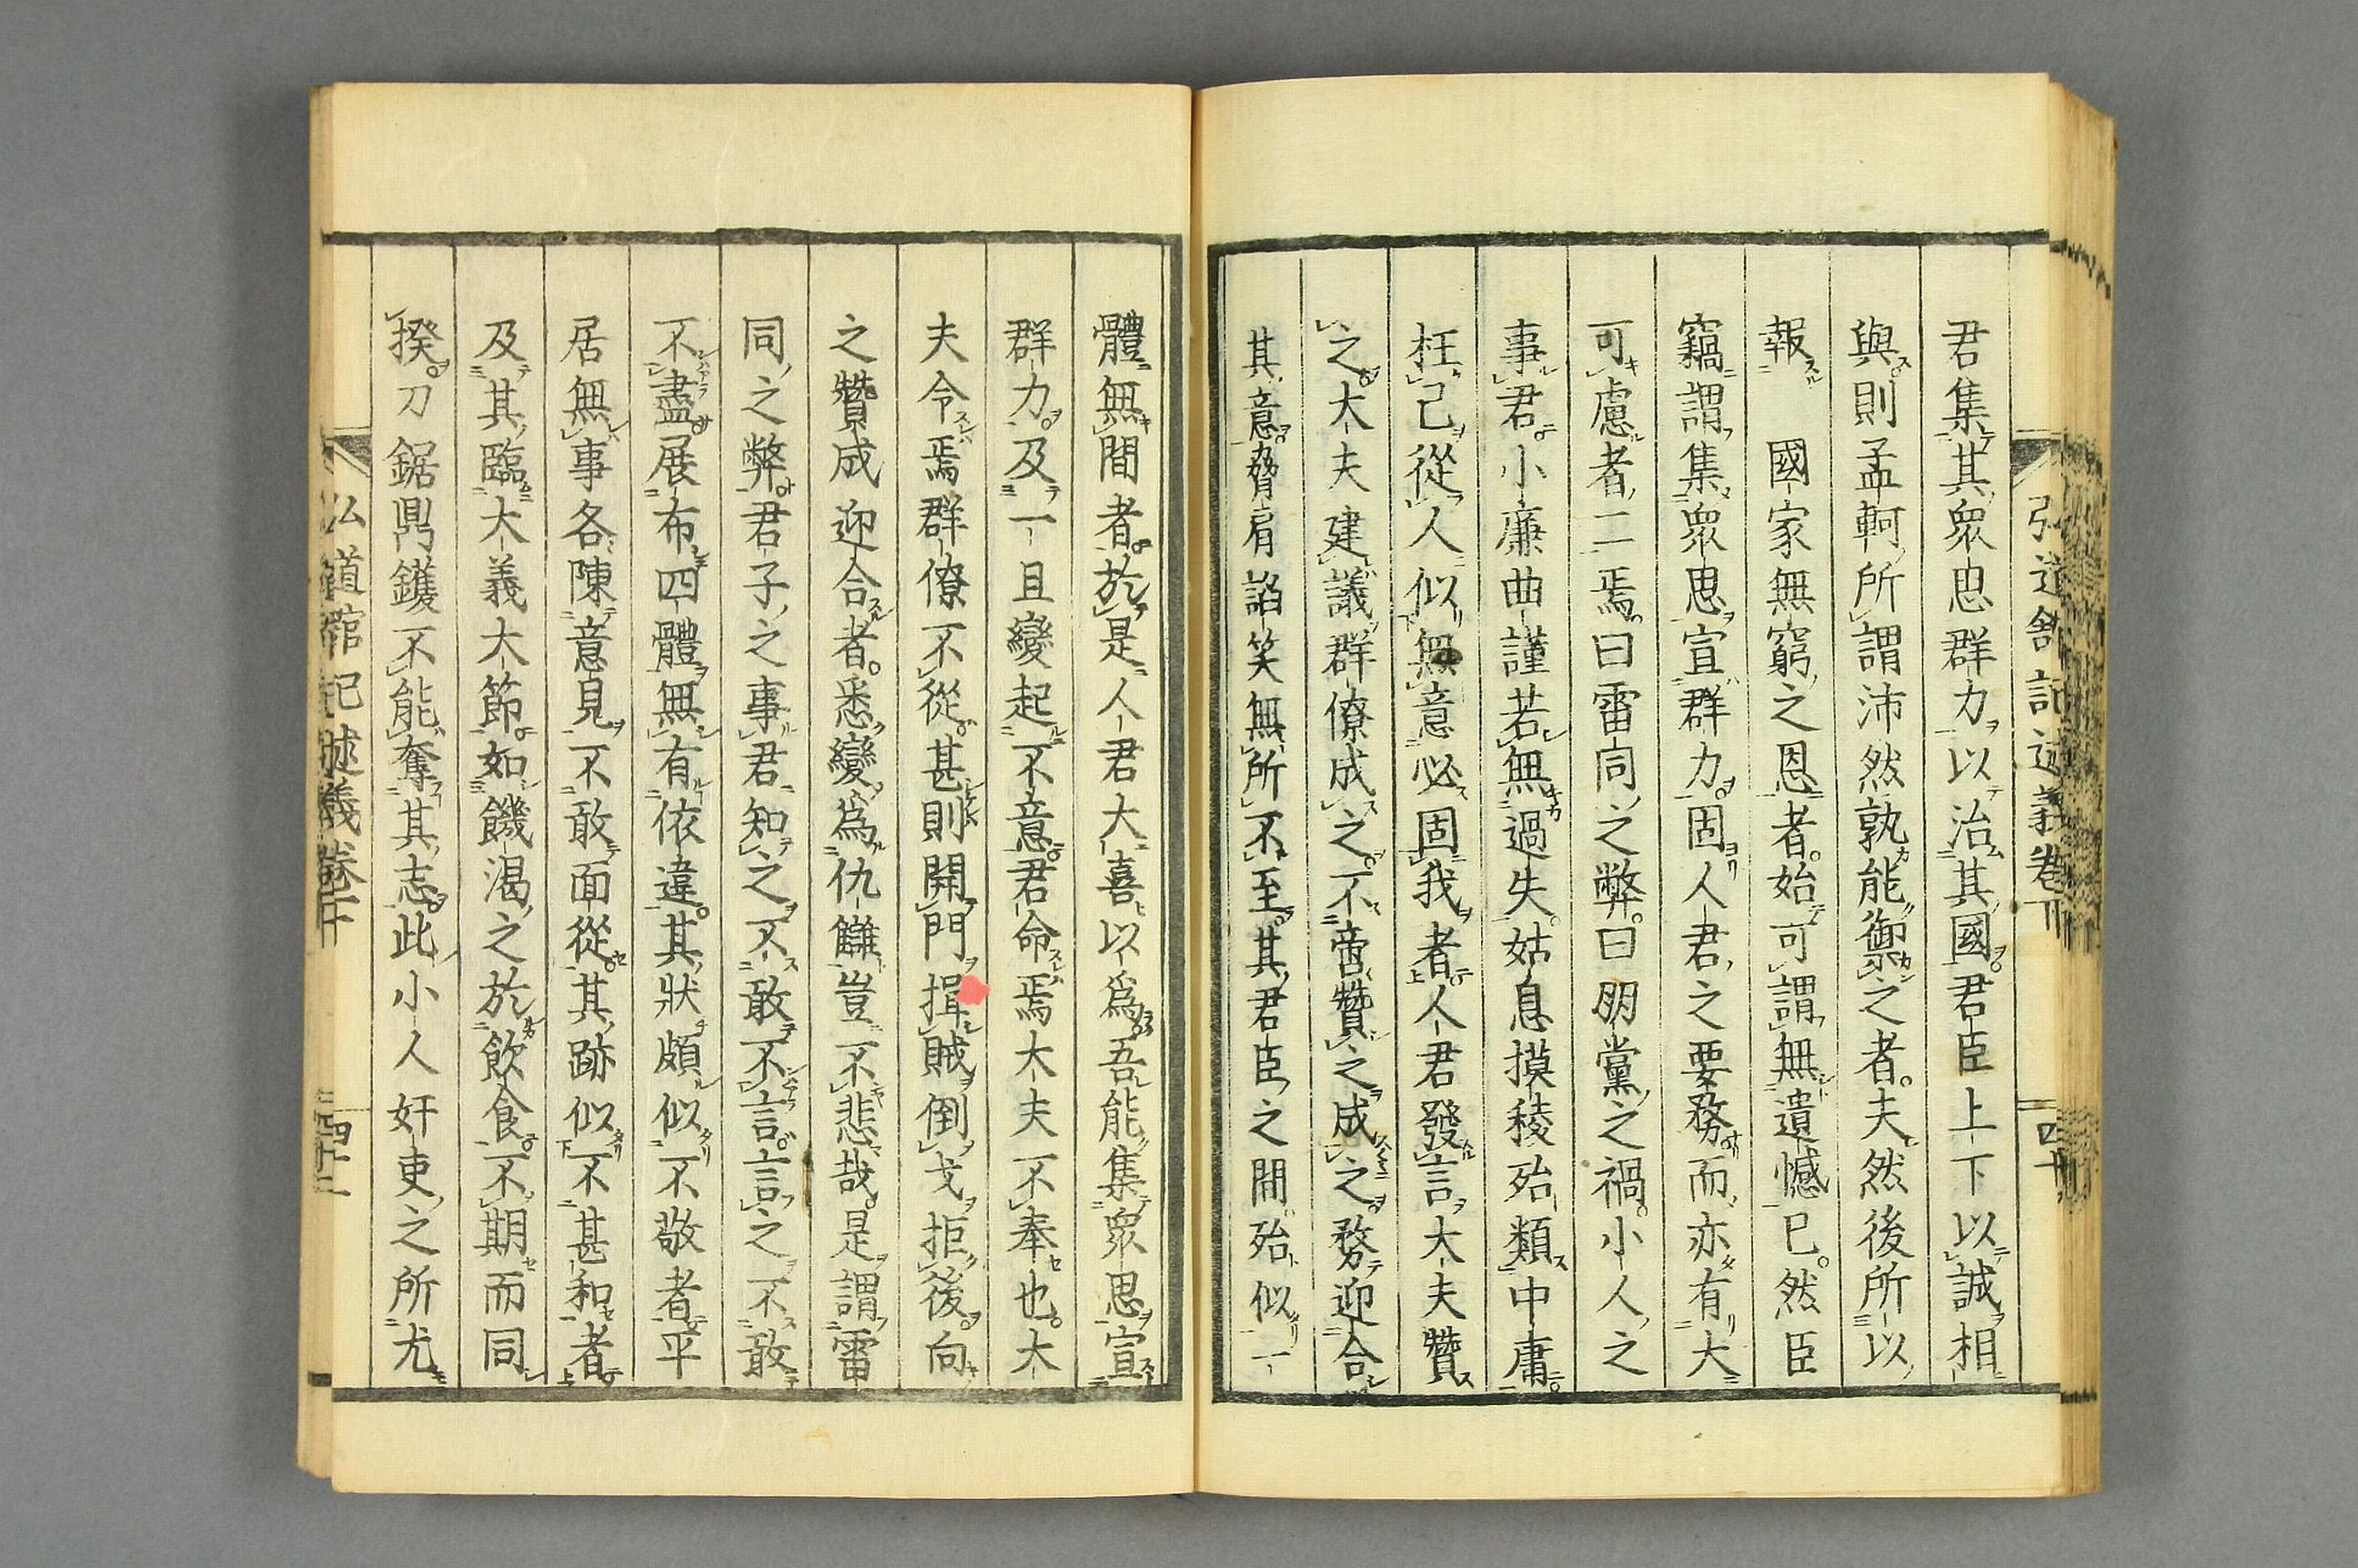 弘道館記述義卷下
君集其衆思群力以治其國君臣上下以誠相
與則孟軻所謂沛然孰能禦之者夫然後所以
報 國家無窮之恩者始可謂無遺憾已然臣
竊謂集衆思宣群力固人君之要務而亦有大
可慮者二焉曰雷同之弊曰朋黨之禍小人之
事君小廉曲謹若無過失姑息摸稜殆類中庸
枉己從人似無意必固我者人君發言大夫贊
之大夫建議群僚成之不啻贊之成之務迎合
其意脅肩諂笑無所不至其君臣之間殆似一
體無間者於是人君大喜以爲吾能集衆思宣
群力及一旦變起不意君命焉大夫不奉也大
夫令焉群僚不從甚則開門揖賊倒戈拒後向
之贊成迎合者悉變爲仇讎豈不悲哉是謂雷
同之弊君子之事君知之不敢不言言之不敢
不盡展布四體無有依違其狀頗似不敬者平
居無事各陳意見不敢面從其跡似不甚和者
及其臨大義大節如饑渴之於飲食不期而同
揆刀鋸鼎鑊不能奪其志此小人奸吏之所尤
弘道館記述義卷下